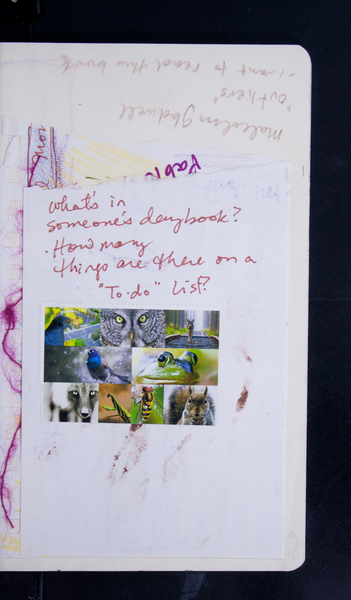 Malcolm Gladwell
"Outliers"
- i want to read this book
Pablo
what's in
someone's daybook?
. How many
things are there on a
"To-do" List?